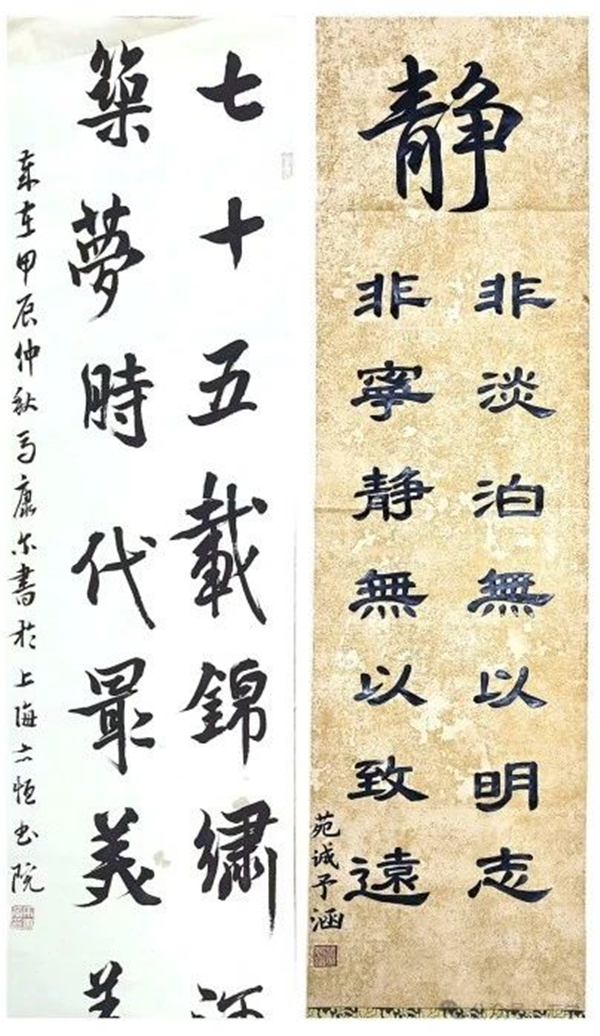 七十五載錦繡
築夢時代最美
歲在甲辰仲秋马康尔書於上海恒书院
静
非淡泊無以明志
非寧静無以致遠
苑诚予涵